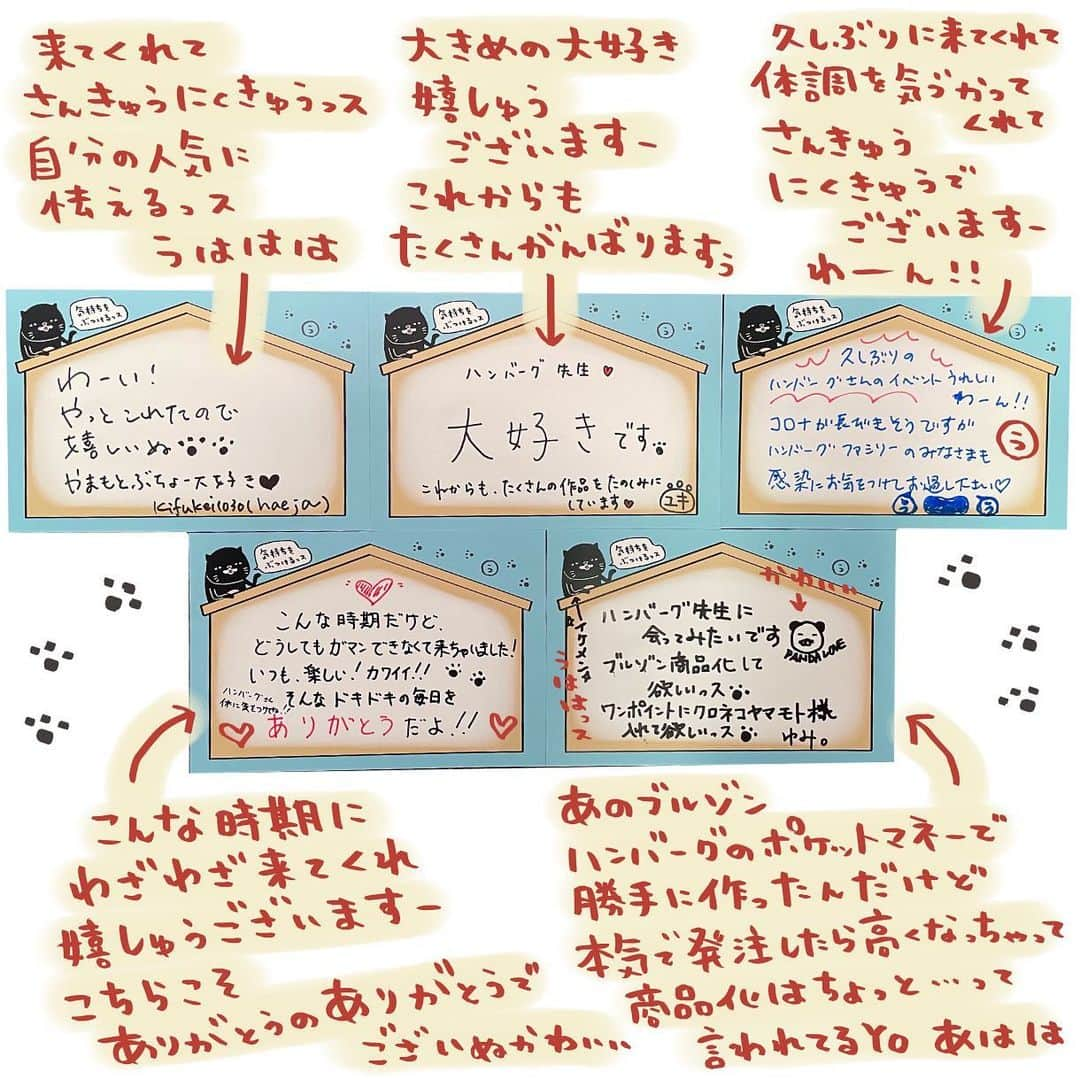 来てくれて
さんきゅうにくきゅうっス
自分の人気に
怯えるっス
うははは
大きめの大好き
嬉しゅう
ございますー
これからも
たくさんがんばりますぅ
久しぶりに来てくれて
体調を気づかって
くれて
さんきゅう
にくきゅうで
ございますー
わーん!!
気持ちを
ぶつけるっス
う
わーい!
やっとこれたので
嬉しいぬ
やまもとぶちょー大好き♥
kifukei1030(haeja)
気持ちを
ぶつけるっス
う
ハンバーグ先生♥
大好きです
これからも、たくさんの作品をたのしみに
しています♥
ユキ
気持ちを
ぶつけるっス
う
久しぶりの
ハンバーグさんのイベントうれしい
わーん!!
コロナが長びきそうですが
ハンバーグファミリーのみなさまも
感染にお気をつけてお過し下さい♡
う
う
う
気持ちを
ぶつけるっス
う
こんな時期だけど、
どうしてもガマンできなくて来ちゃいました!
いつも、楽しい!カワイイ!!
ハンバーグさん
体に気をつけてね!!
そんなドキドキの毎日を
ありがとうだよ!!
気持ちを
ぶつけるっス
う
←イケメン
うははっス
かわいい
ハンバーグ先生に
会ってみたいです
PANDA LOVE
ブルゾン商品化して
欲しいっス
ワンポイントにクロネコヤマモト様
入れて欲しいっス
ゆみ。
こんな時期に
わざわざ来てくれ
嬉しゅうございますー
こちらこそ
ありがとうのありがとうで
ございぬかわいい
あのブルゾン
ハンバーグのポケットマネーで
勝手に作ったんだけど
本気で発注したら高くなっちゃって
商品化はちょっと…って
言われてるYO あはは